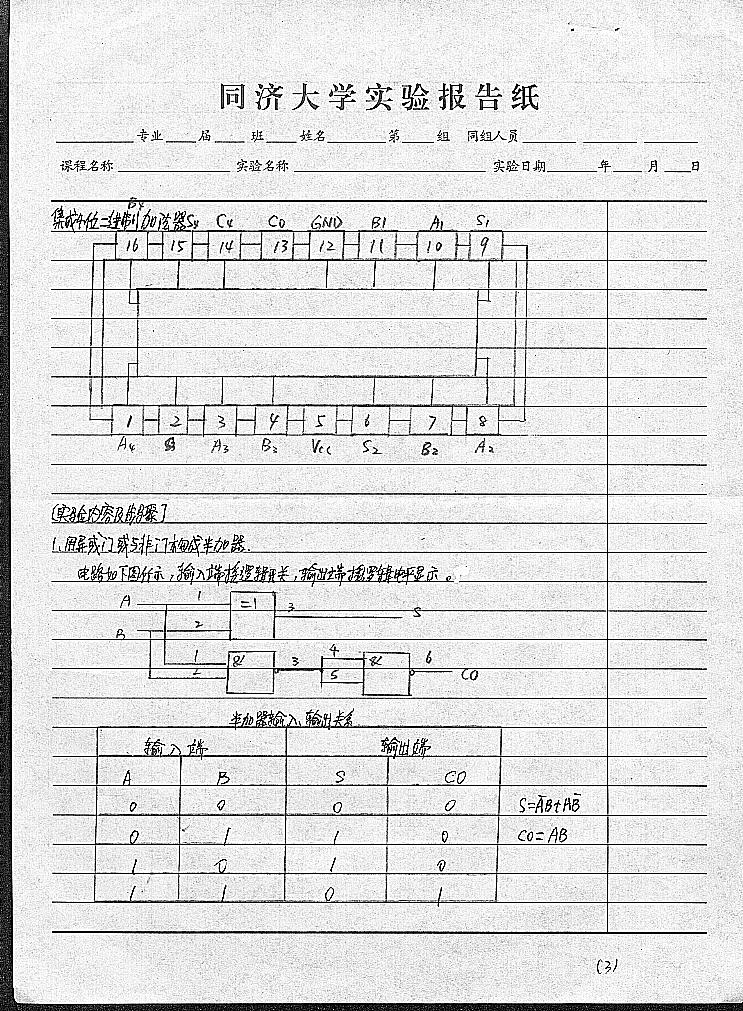 同济大学实验报告纸
专业 届 班 姓名 第 组 同组人员
课程名称 实验名称 实验日期 年 月 日
集成4位二进制加法器
B4 S4 C4 C0 GND B1 A1 S1
16 15 14 13 12 11 10 9
1 2 3 4 5 6 7 8
A4 A3 B3 Vcc S2 B2 A2
[实验内容及步骤]
1、用异或门或与非门构成半加器.
电路如下图所示，输入端接逻辑开关，输出端接逻辑电平显示。
A 1 =1 3 S
B 2
1 & 3 4 & 6 CO
2 5
半加器输入、输出关系
输入端 输出端
A B S CO
0 0 0 0 S=A̅B+AB̅
0 1 1 0 CO=AB
1 0 1 0
1 1 0 1
(3)